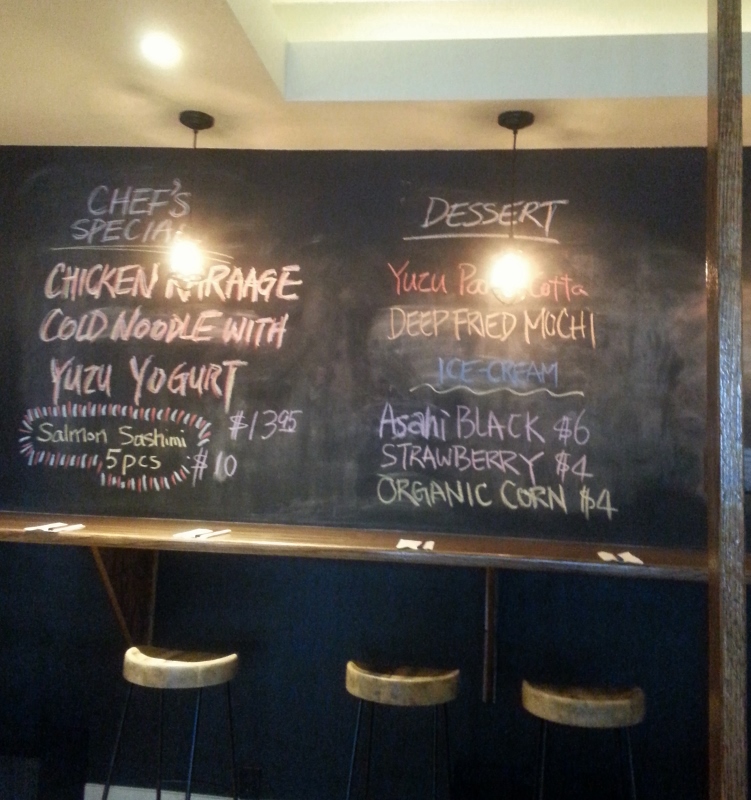 CHEF'S
SPECIAL
CHICKEN KARAAGE
COLD NOODLE WITH
YUZU YOGURT
$13.95
Salmon Sashimi
5 pcs $10
DESSERT
Yuzu Cotta
DEEP FRIED MOCHI
ICE-CREAM
Asahi BLACK $6
STRAWBERRY $4
ORGANIC CORN $4